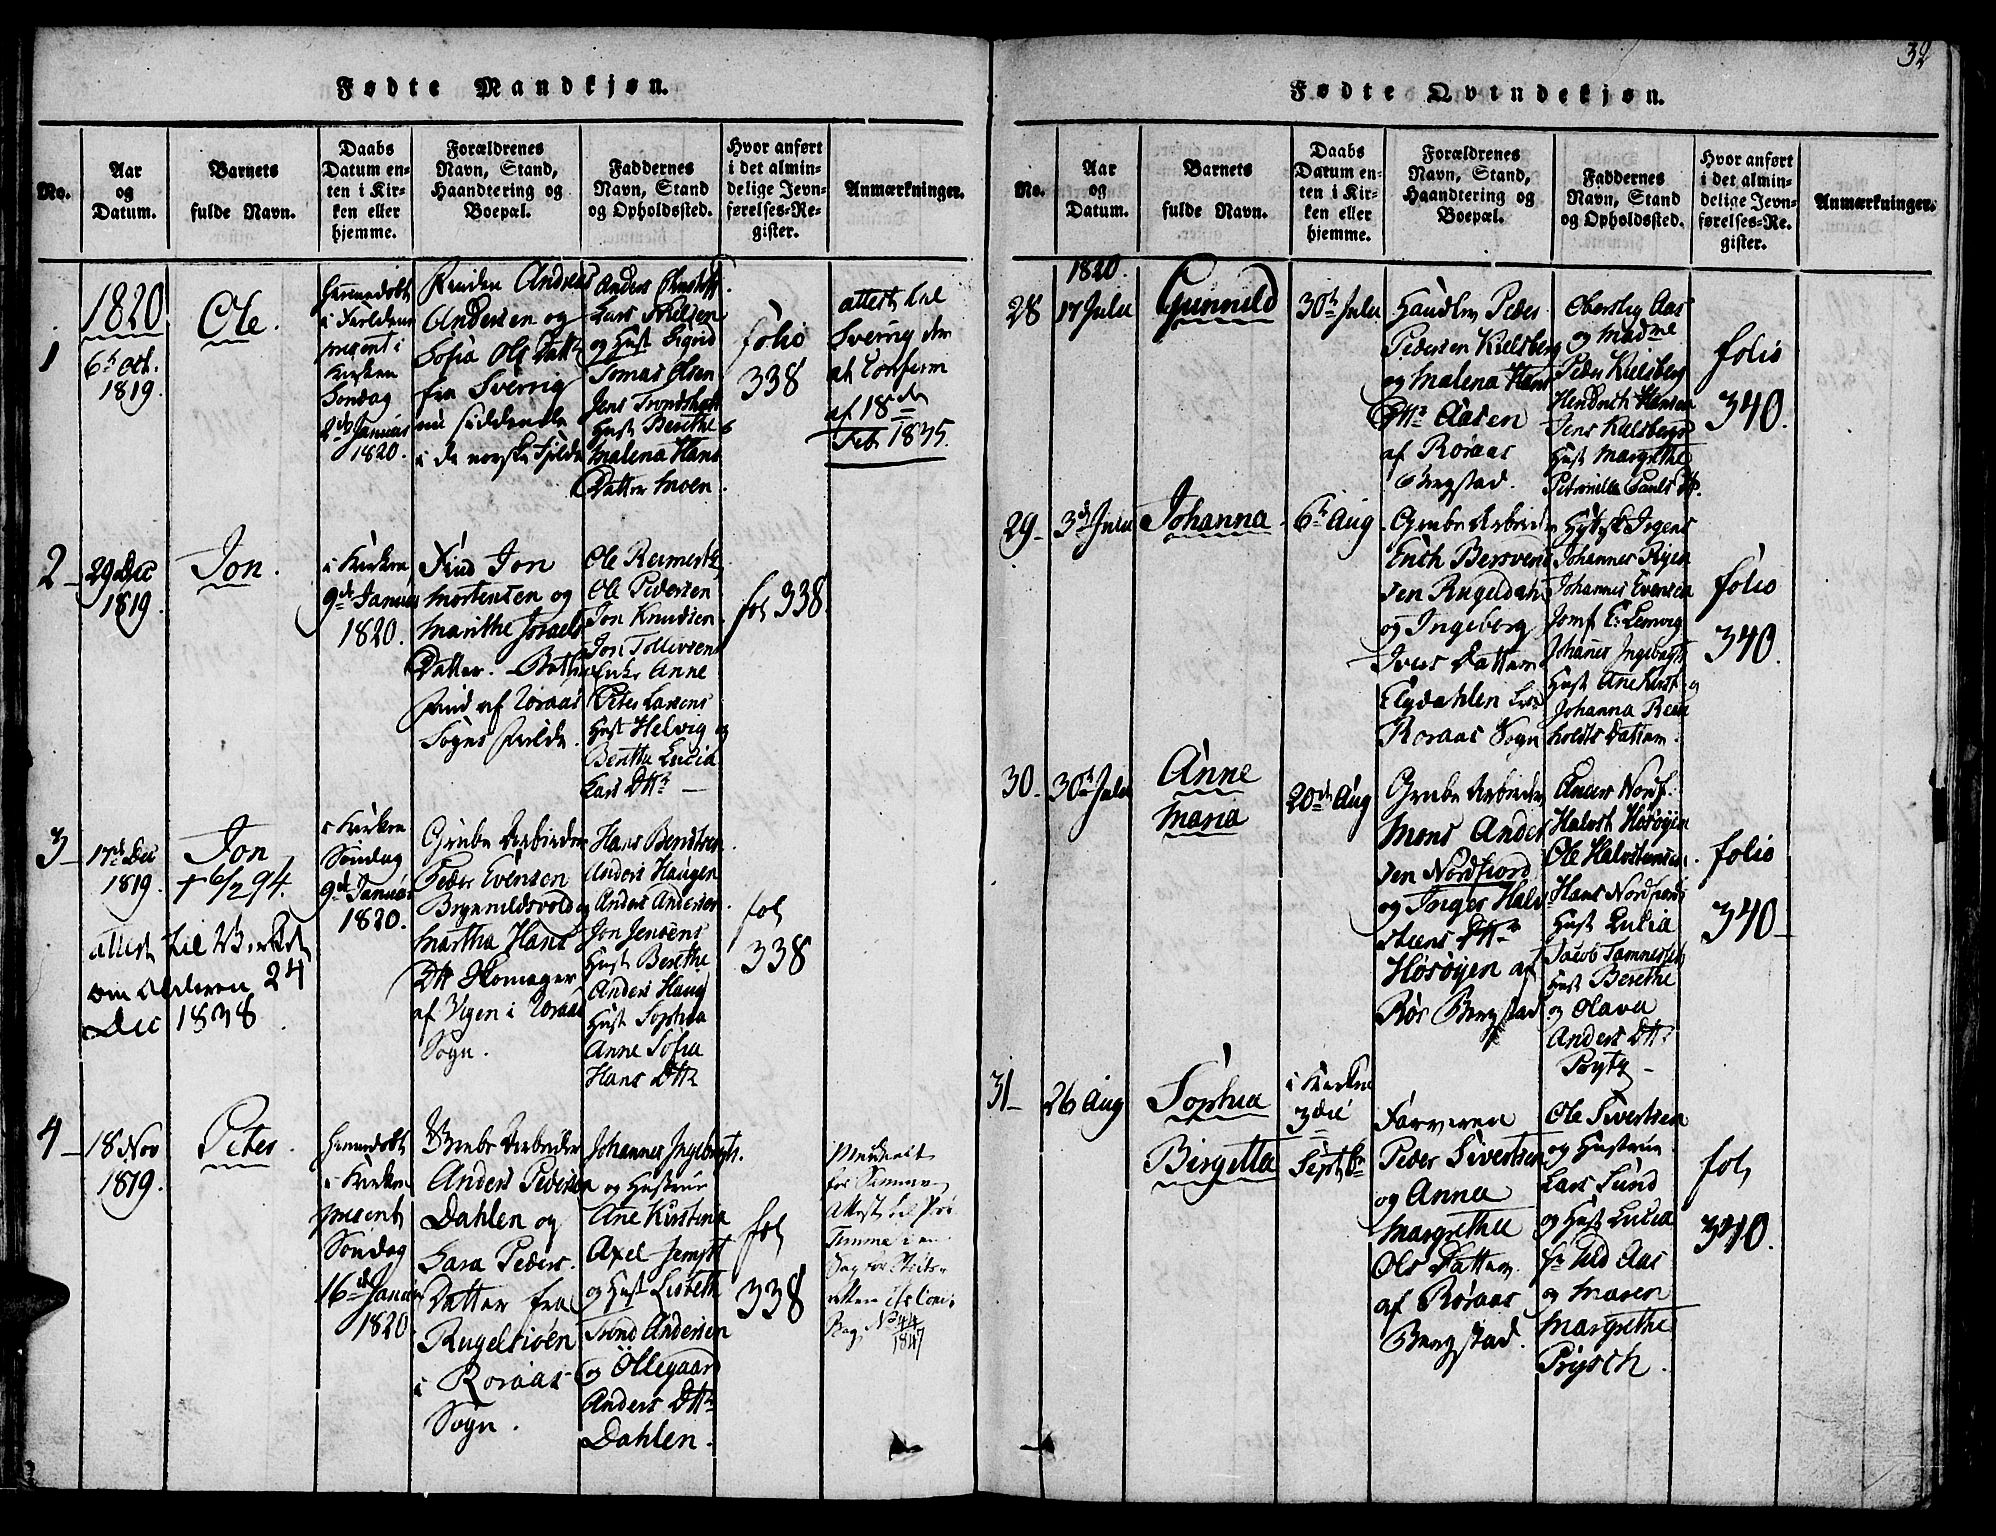 32
Fødte Mandkjøn.
No.
Aar
og
Datum.
Barnets
fulde Navn.
Daabs
Datum en-
ten i Kir-
ken eller
hjemme.
Forældrenes
Navn, Stand,
Haandtering og
Boepæl.
Faddernes
Navn, Stand
og Opholdssted.
Hvor anført
i det almin-
delige Jevn-
førelses-Re-
gister.
Anmærkninger.
1
1820
6h Oct.
1819.
Ole.
hiemmedøbt
present i
Kirken
Søndag
2de Januar
1820.
Andreas
Andersen og
Sofia Ols Datt
fra Sverrig
nu
i de norske Fjelde
Anders
Lars Nielsen
og Hust Sigrid
Tomas Olsen
Jens
Hust Berethe
Malena Hans
Datter Moen.
folio
338
attest til
Sverrig
at Conferm
af 18de
Feb. 1835.
2
29 Dec
1819.
Jon.
i Kirken
9de Januar
1820.
Find Jon
Mortensen og
Marithe Israels
Datter.
Find af Røraas
Sogns
Ole
Ole Pedersen
Jon Knudsen
Jon Tollevsen
Enke Anne
Peter Larsens
Hust Helvig og
Beretha Lucia
Lars Dttr
fol 338
3
17de Dec
1819.
Jon
† 6/2 94.
attest til
om Alderen 24
Dec 1838
i Kirken
Søndag
9de Januar
1820.
Grube Arbeider
Peder Evensen
Brynnildsvold og
Martha Hans
Dtt Skomager
af Vigen i Røraas
Sogn.
Hans Bendtsen
Anders Haugen
Anders Andersen
Jon Jensens
Hust Berethe
Anders Haug
Hust Sophia
Anne Sofia
Hans Dttr
fol
338
4
18 Nov
1819.
Peter.
hiemmedøbt
i Kirken
present
Søndag
16de Januar
1820
Grube Arbeider
Anders Pedersen
Dahlen og
Sara Peders
Datter fra
Rugelsiøen
i Røraas
Sogn.
Johannes Ingebrigts.
og Hustrue
Ane Kirstina
Axel
og Hust Lisbeth
Trond Andersen
og Øllegaard
Anders Dttr
Dahlen.
fol
338
Meddeelt
Attest til
i en
Sag
Reg. N 44
1847
Fødte Qvindekjøn.
No.
Aar
og
Datum.
Barnets
fulde Navn.
Daabs
Datum en-
ten i Kir-
ken eller
hjemme.
Forældrenes
Navn, Stand,
Haandtering og
Boepæl.
Faddernes
Navn, Stand
og Opholdssted.
Hvor anført
i det almin-
delige Jevn-
førelses-Re-
gister.
Anmærkninger.
1820.
28
17 Julii
Gunnild
30h Julii
Handlr Peder
Pedersen Kielsberg
og Malena Hans
Dttr Aasen
af Røraas
Bergstad.
Oberstlig Aas
og Madme
Peder Kielsberg
Hendrich Hansen
Jens Kielsbergs
Hust Margrethe
Petronille Pauls D.
folio
340.
29
3d Julii
Johanna
6h Aug
Grube Arbeider
Erich Bersvend
sen Rugeldahl
og Ingeborg
Ivers Datter
Elgdahlen
Røraas Sogn
Johannes
Johannes Evensen
Jomf E: Lemvig
Johanes Ingebrigts
Hust Ane Kirst. og
Johanna
holdts Datter.
folio
340.
30
30h Julii
Anne
Maria
20de Aug
Grube Arbeider
Mons Ander
sen Nordfiord
og Inger Halv
stens Dttr
Hosøyen af
Rør Bergstad
Anders Nordf.
Halvst Hosøyen
Ole Halvstensen
Hans Nordfiords
Hust Lucia
Jacob Tamnessets
Hust Berethe
og Olava
Anders Dttr
folio
340
31
26 Aug
Sophia
Birgetta
i Kirken
3die
Septbr
Farveren
Peder Sivertsen
og Anna
Margretha
Ols Datter
af Røraas
Bergstad.
Ole Sivertsen
og Hustrue
Lars Sund
og Hust Lucia
Hr Stud Aas
og Maren
Margrethe
Prysch.
fol
340.